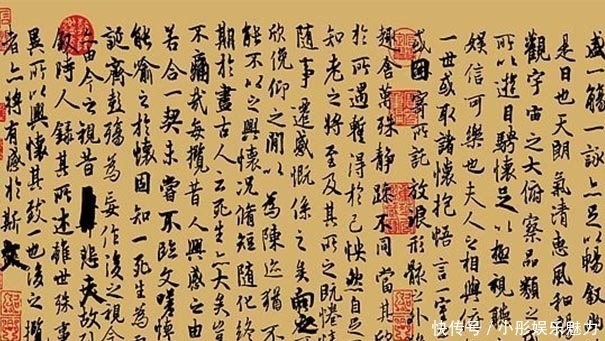 盛一觴一詠亦足以暢敘
是日也天朗氣清惠風和
觀宇宙之大俯察品類之
所以遊目騁懷足以極視聽
娛信可樂也夫人之相與
一世或取諸懷抱悟言一室
或因寄所託放浪形骸之外
趣舍萬殊靜躁不同當其
於所遇蹔得於己怏然自足
知老之將至及其所之既惓情
隨事遷感慨係之矣向之
欣俛仰之間以為陳迹猶不
能不以之興懷況脩短隨化終
期於盡古人云死生亦大矣豈
不痛哉每攬昔人興感之由
若合一契未嘗不臨文嗟悼
能喻之於懷固知一死生為
誕齊彭殤為妄作後之視今
亦由今之視昔悲夫故列
敘時人錄其所述雖世殊事
異所以興懷其致一也後之攬
者亦將有感於斯文
快传号／小彤娱乐魅力